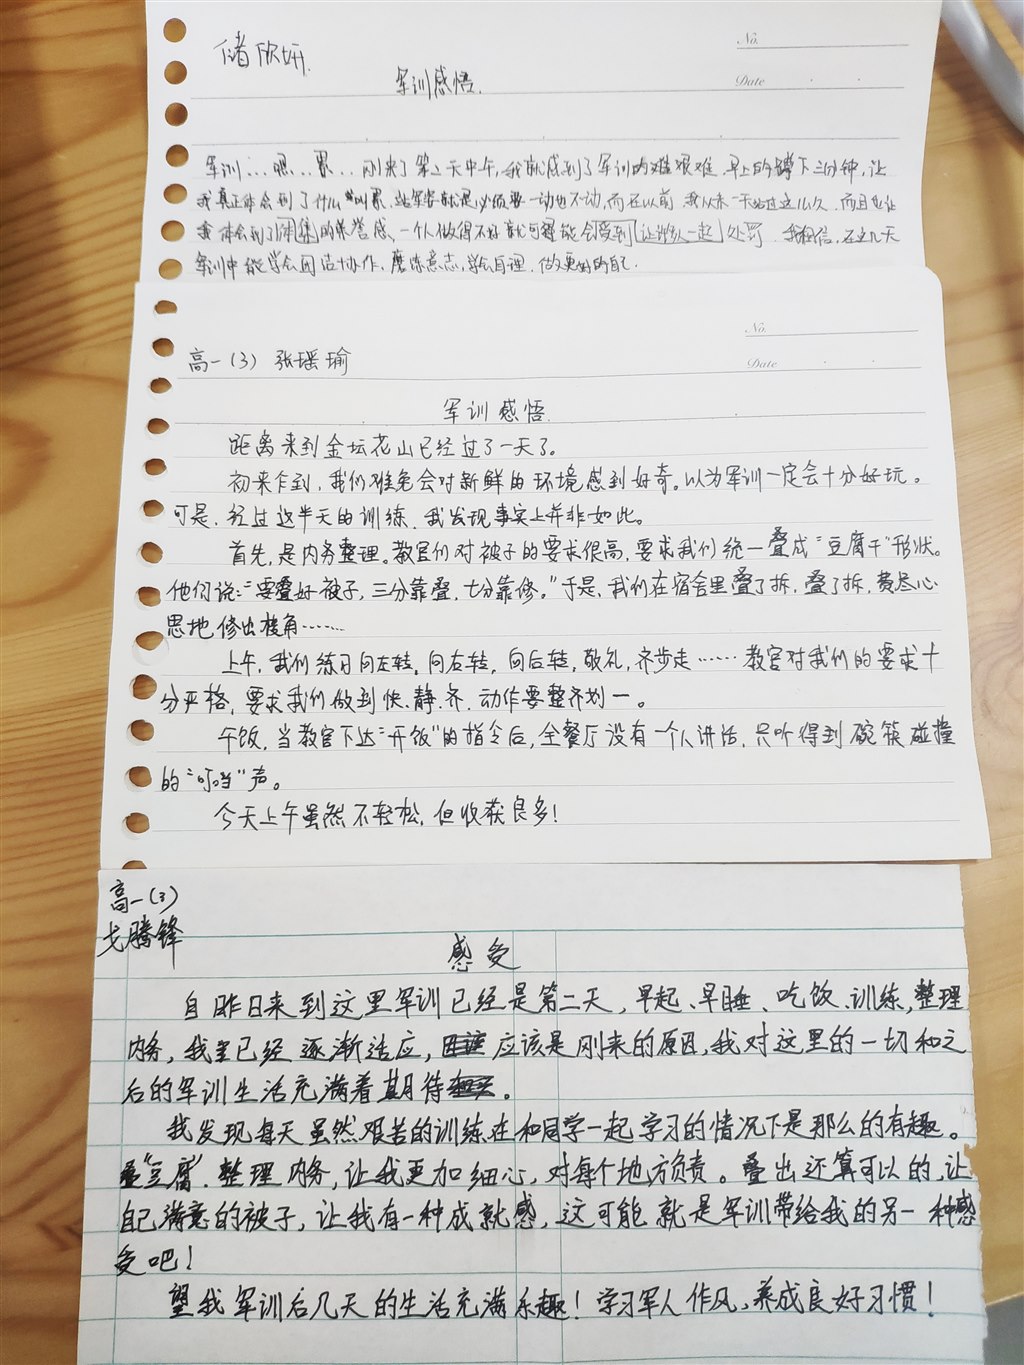 储欣妍.
No.
军训感悟.
Date
军训...嗯...累...刚来了第二天中午,我就感到了军训的艰难.早上的蹲下三分钟,让
我真正体会到了什么叫累.站军姿就是必须要一动也不动,而在以前我从未一天站过这么久.而且也让
我体会到了团集的荣誉感,一个人做得不好就可能会受到让许多人一起处罚.我相信,在这几天
军训中能学会团结协作,磨炼意志,学会自理.做更好的自己.
No.
高一(3) 张瑶瑜
Date
军训感悟.
距离来到金坛花山已经过了一天了。
初来乍到,我们难免会对新鲜的环境感到好奇。以为军训一定会十分好玩。
可是,经过这半天的训练,我发现事实上并非如此。
首先,是内务整理。教官们对被子的要求很高,要求我们统一叠成“豆腐干”形状。
他们说:“要叠好被子,三分靠叠,七分靠修。”于是,我们在宿舍里叠了拆,叠了拆,费尽心
思地修出棱角……
上午,我们练习向左转,向右转,向后转,敬礼,齐步走……教官对我们的要求十
分严格,要求我们做到快、静、齐,动作要整齐划一。
午饭,当教官下达“开饭”的指令后,全餐厅没有一个人讲话,只听得到碗筷碰撞
的“叮当”声。
今天上午虽然不轻松,但收获良多!
高一(3)
戈腾锋
感受
自昨日来到这里军训已经是第二天,早起、早睡、吃饭、训练,整理
内务,我已经逐渐适应,应该是刚来的原因,我对这里的一切和之
后的军训生活充满着期待。
我发现每天虽然艰苦的训练在和同学一起学习的情况下是那么的有趣。
叠“豆腐”.整理内务,让我更加细心,对每个地方负责。叠出还算可以的,让
自己满意的被子,让我有一种成就感,这可能就是军训带给我的另一种感
受吧!
望我军训后几天的生活充满乐趣!学习军人作风,养成良好习惯!